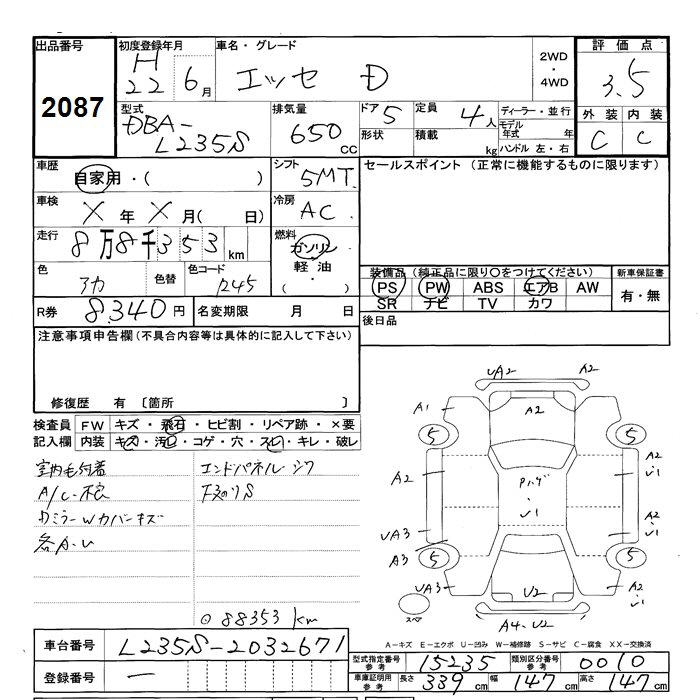 出品番号 初度登録年月 車名・グレード 評価点
2087 H22 6月 エッセ D 2WD・4WD 3.5
型式 排気量 ドア 定員 ディーラー・並行 外装 内装
DBA-L235S 650CC 5 4人 モデル年式 年 C C
形状 積載 kg ハンドル 左・右
車歴 自家用・( ) シフト 5MT セールスポイント (正常に機能するものに限ります)
車検 X 年 X 月( 日) 冷房 AC
走行 8万8千353km 燃料 ガソリン 軽油 ・( )
色 アカ 色替 色コード R45
装備品 (純正品に限り○をつけてください) 新車保証書
PS PW ABS エアB AW 有・無
SR ナビ TV カワ
R券 8340円 名変期限 月 日 後日品
注意事項申告欄 (不具合内容等は具体的に記入して下さい)
修復歴 有 〔箇所 〕
検査員 FW キズ・飛石・ヒビ割・リペア跡・×要
記入欄 内装 キズ・汚レ・コゲ・穴・スレ・キレ・破レ
室内毛付着 エンドパネルシワ
下廻りS
各A・U
⊙88353km
UA2 A2
A1 A2
5 5
A2 A2・U1
U1
UA3 A2・U1
A3 5 5
UA3 U2 A2
スペア A4・U2
A-キズ E-エクボ U-凹み W-補修跡 S-サビ C-腐食 XX-交換済
車台番号 L235S-2032671
登録番号 —
型式指定番号 参考 15235 類別区分番号 参考 0010
車庫証明用 参考 長さ 339cm 幅 147cm 高さ 147cm